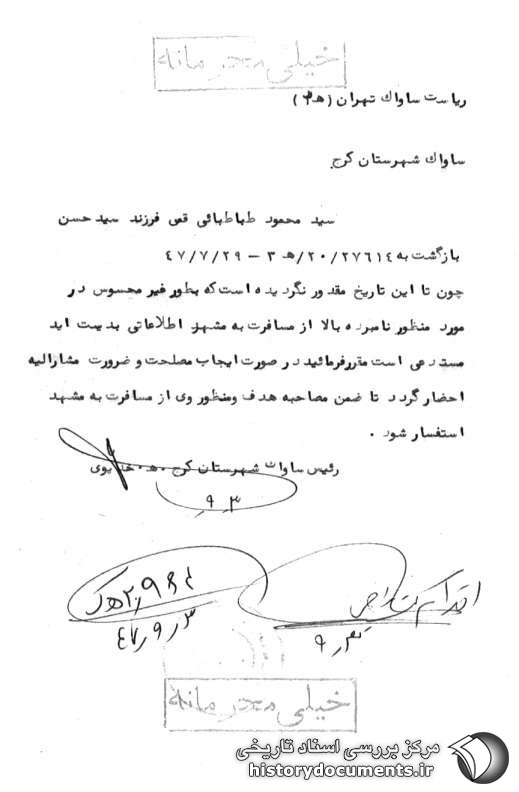 خیلی محرمانه
ریاست ساواك تهران (ه‍ ۳)
ساواك شهرستان كرج
سید محمود طباطبائی قمی فرزند سید حسن
بازگشت به ۲۰/۲۷۶۱۴/ه‍ ۳ - ۴۷/۷/۲۹
چون تا این تاریخ مقدور نگردیده است که بطور غیر محسوس در
مورد منظور نامبرده بالا از مسافرت به مشهد اطلاعاتی بدست آید
مستدعی است مقرر فرمائید در صورت ایجاب مصلحت و ضرورت مشارالیه
احضار گردد تا ضمن مصاحبه هدف و منظور وی از مسافرت به مشهد
استفسار شود .
رئیس ساواك شهرستان كرج . ه‍ .
۹/۳
اقدام
۹/۳
ه‍ ك
۴۷/۹/۳
خیلی محرمانه
مرکز بررسی اسناد تاریخی
historydocuments.ir